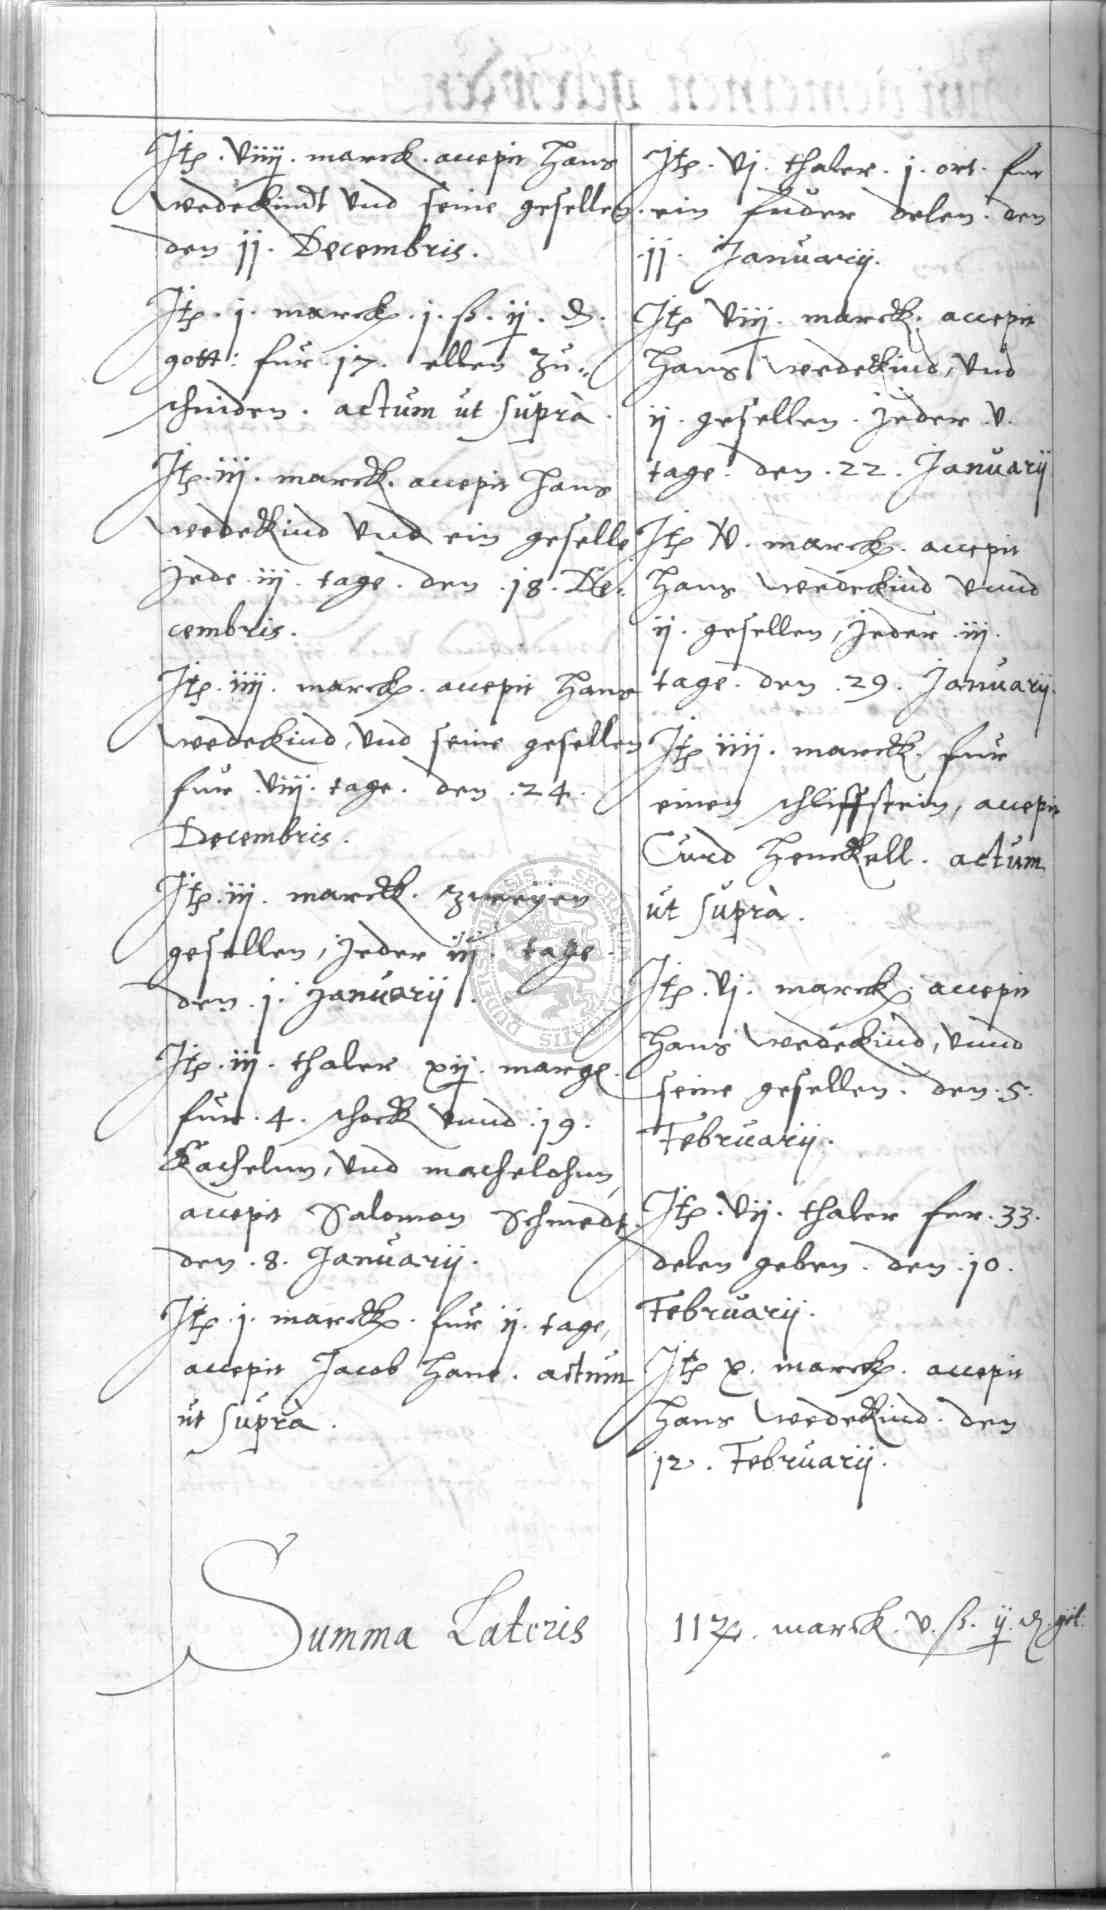 Jtꝫ. viiij. marck. accepit Hans
wedekindt vnd seine gesellen.
den jj. Decembris.
Jtꝫ. j. marck. j. ß. ij. ₰.
gott: fur 17. ellen zu„
schniden. actum ut suprà.
Jtꝫ. iij. marck. accepit Hans
wedekind vnd ein geselle
Jede. iij. tage. den 18. De„
cembris.
Jtꝫ. iiij. marck. accepit Hans
wedekind, vnd seine gesellen
fur. viij. tage. den .24.
Decembris.
Jtꝫ. iij. marck. zweÿen
gesellen, Jeder iij. tage.
den. j. Januarij.
Jtꝫ. iij. thaler xij. marge.
fur. 4. schock vnnd .19.
Kachelnn, vnd machelohnn,
accepit Salomon Schmedt.
den .8. Januarij.
Jtꝫ. j. marck. fur ij. tage,
accepit Jacob Hane. actum
ut suprà.
Jtꝫ. vj. thaler. j. ort. fur
ein fuder delen. den
jj. Januarij.
Jtꝫ viij. marck. accepit
Hans wedekind, vnd
ij. gesellen. Jeder .v.
tage. den .22. Januarij
Jtꝫ v. marck. accepit
Hans wedekind vnnd
ij. gesellen, Jeder .iij.
tage. den .29. Januarij.
Jtꝫ iiij. marck. fur
einen schliffstein, accepit
Curd Henckell. actum
ut suprà.
Jtꝫ. vj. marck. accepit
Hans wedekind, vnnd
seine gesellen. den .5.
Februarij.
Jtꝫ. vij. thaler fur .33.
delen geben. den .10.
Februarij.
Jtꝫ x. marck. accepit
Hans wedekind. den
12. Februarij.
Summa Lateris 117. marck. v. ß. ij. ₰. gott.